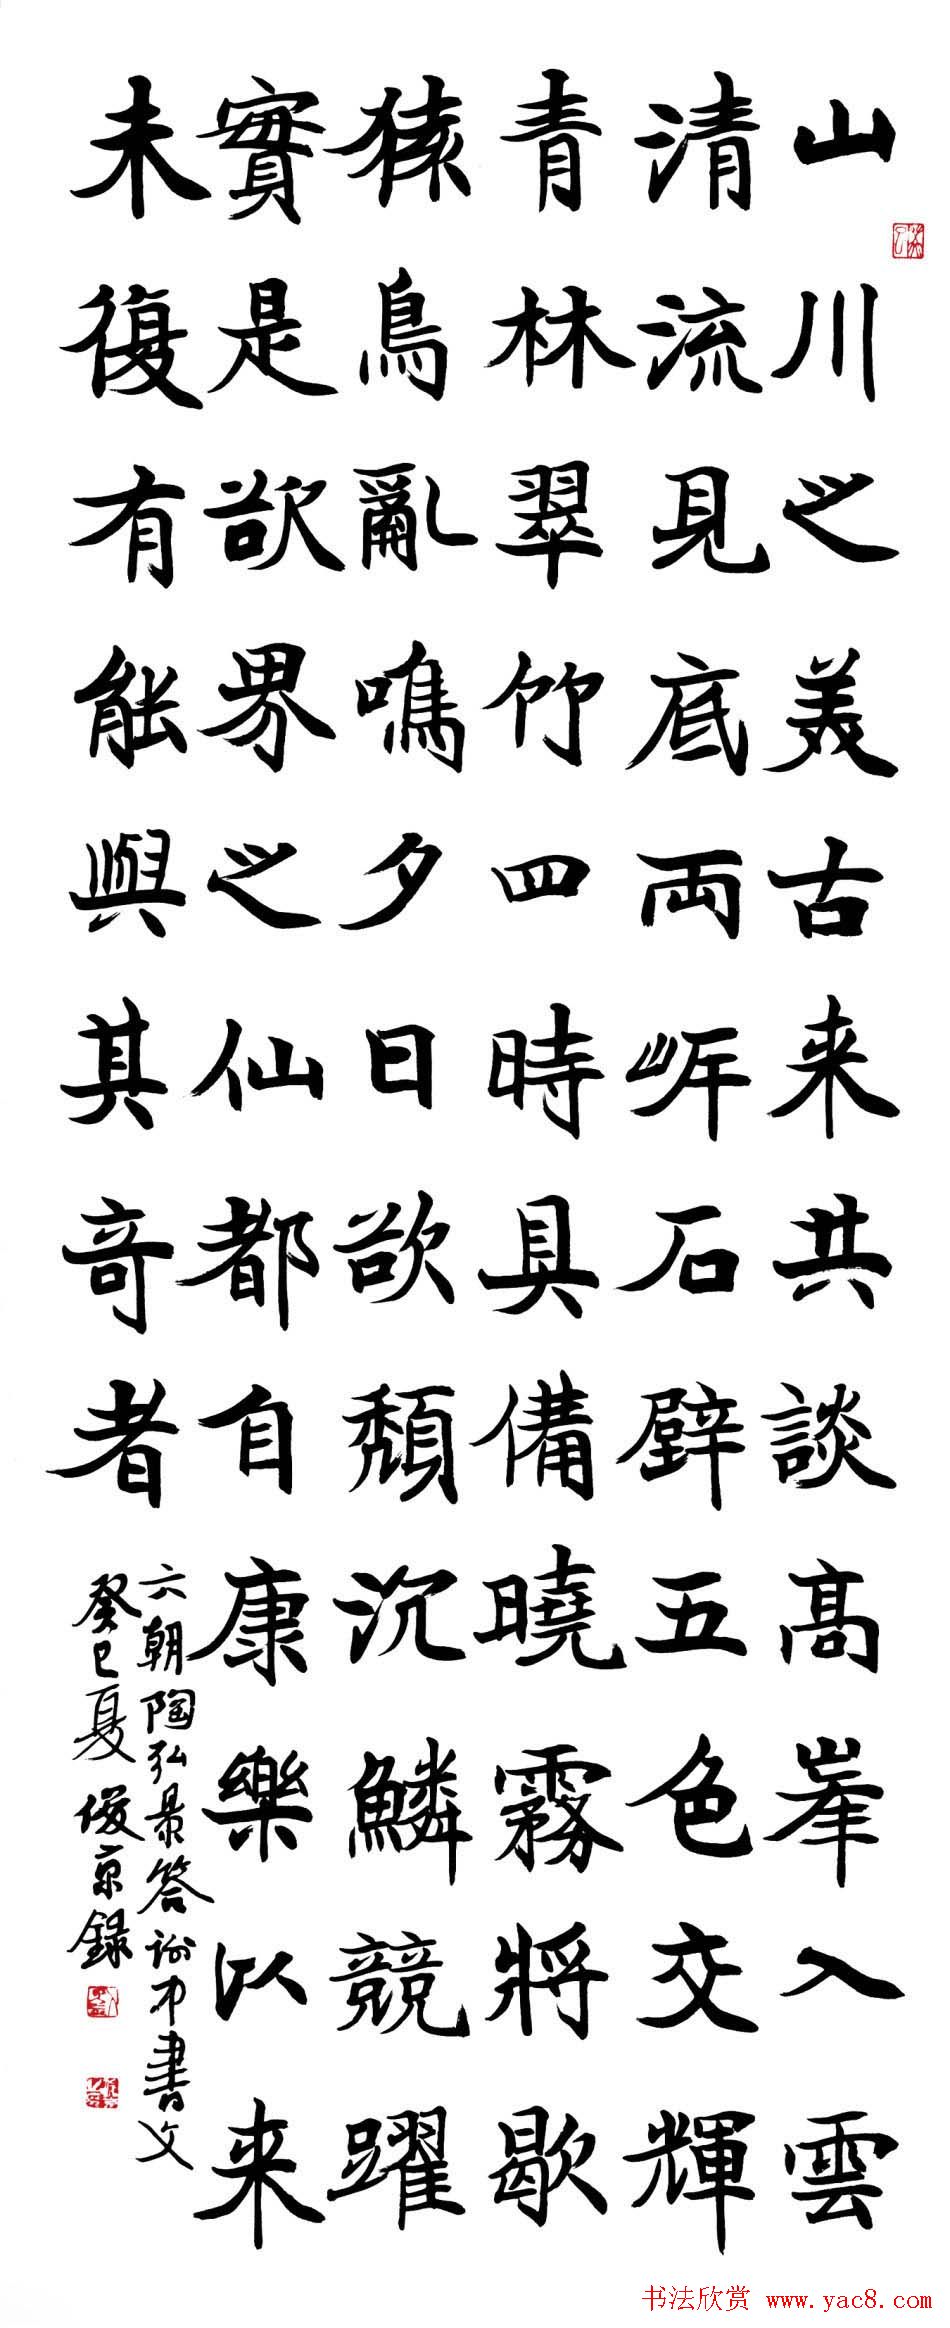 山川之美古来共談高峯入雲
清流見底両岸石壁五色交輝
青林翠竹四時具備曉霧將歇
猿鳥亂鳴夕日欲頹沉鱗競躍
實是欲界之仙都自康樂以来
未復有能與其奇者
六朝陶弘景答謝中書文
癸巳夏俊京錄
书法欣赏 www.yac8.com